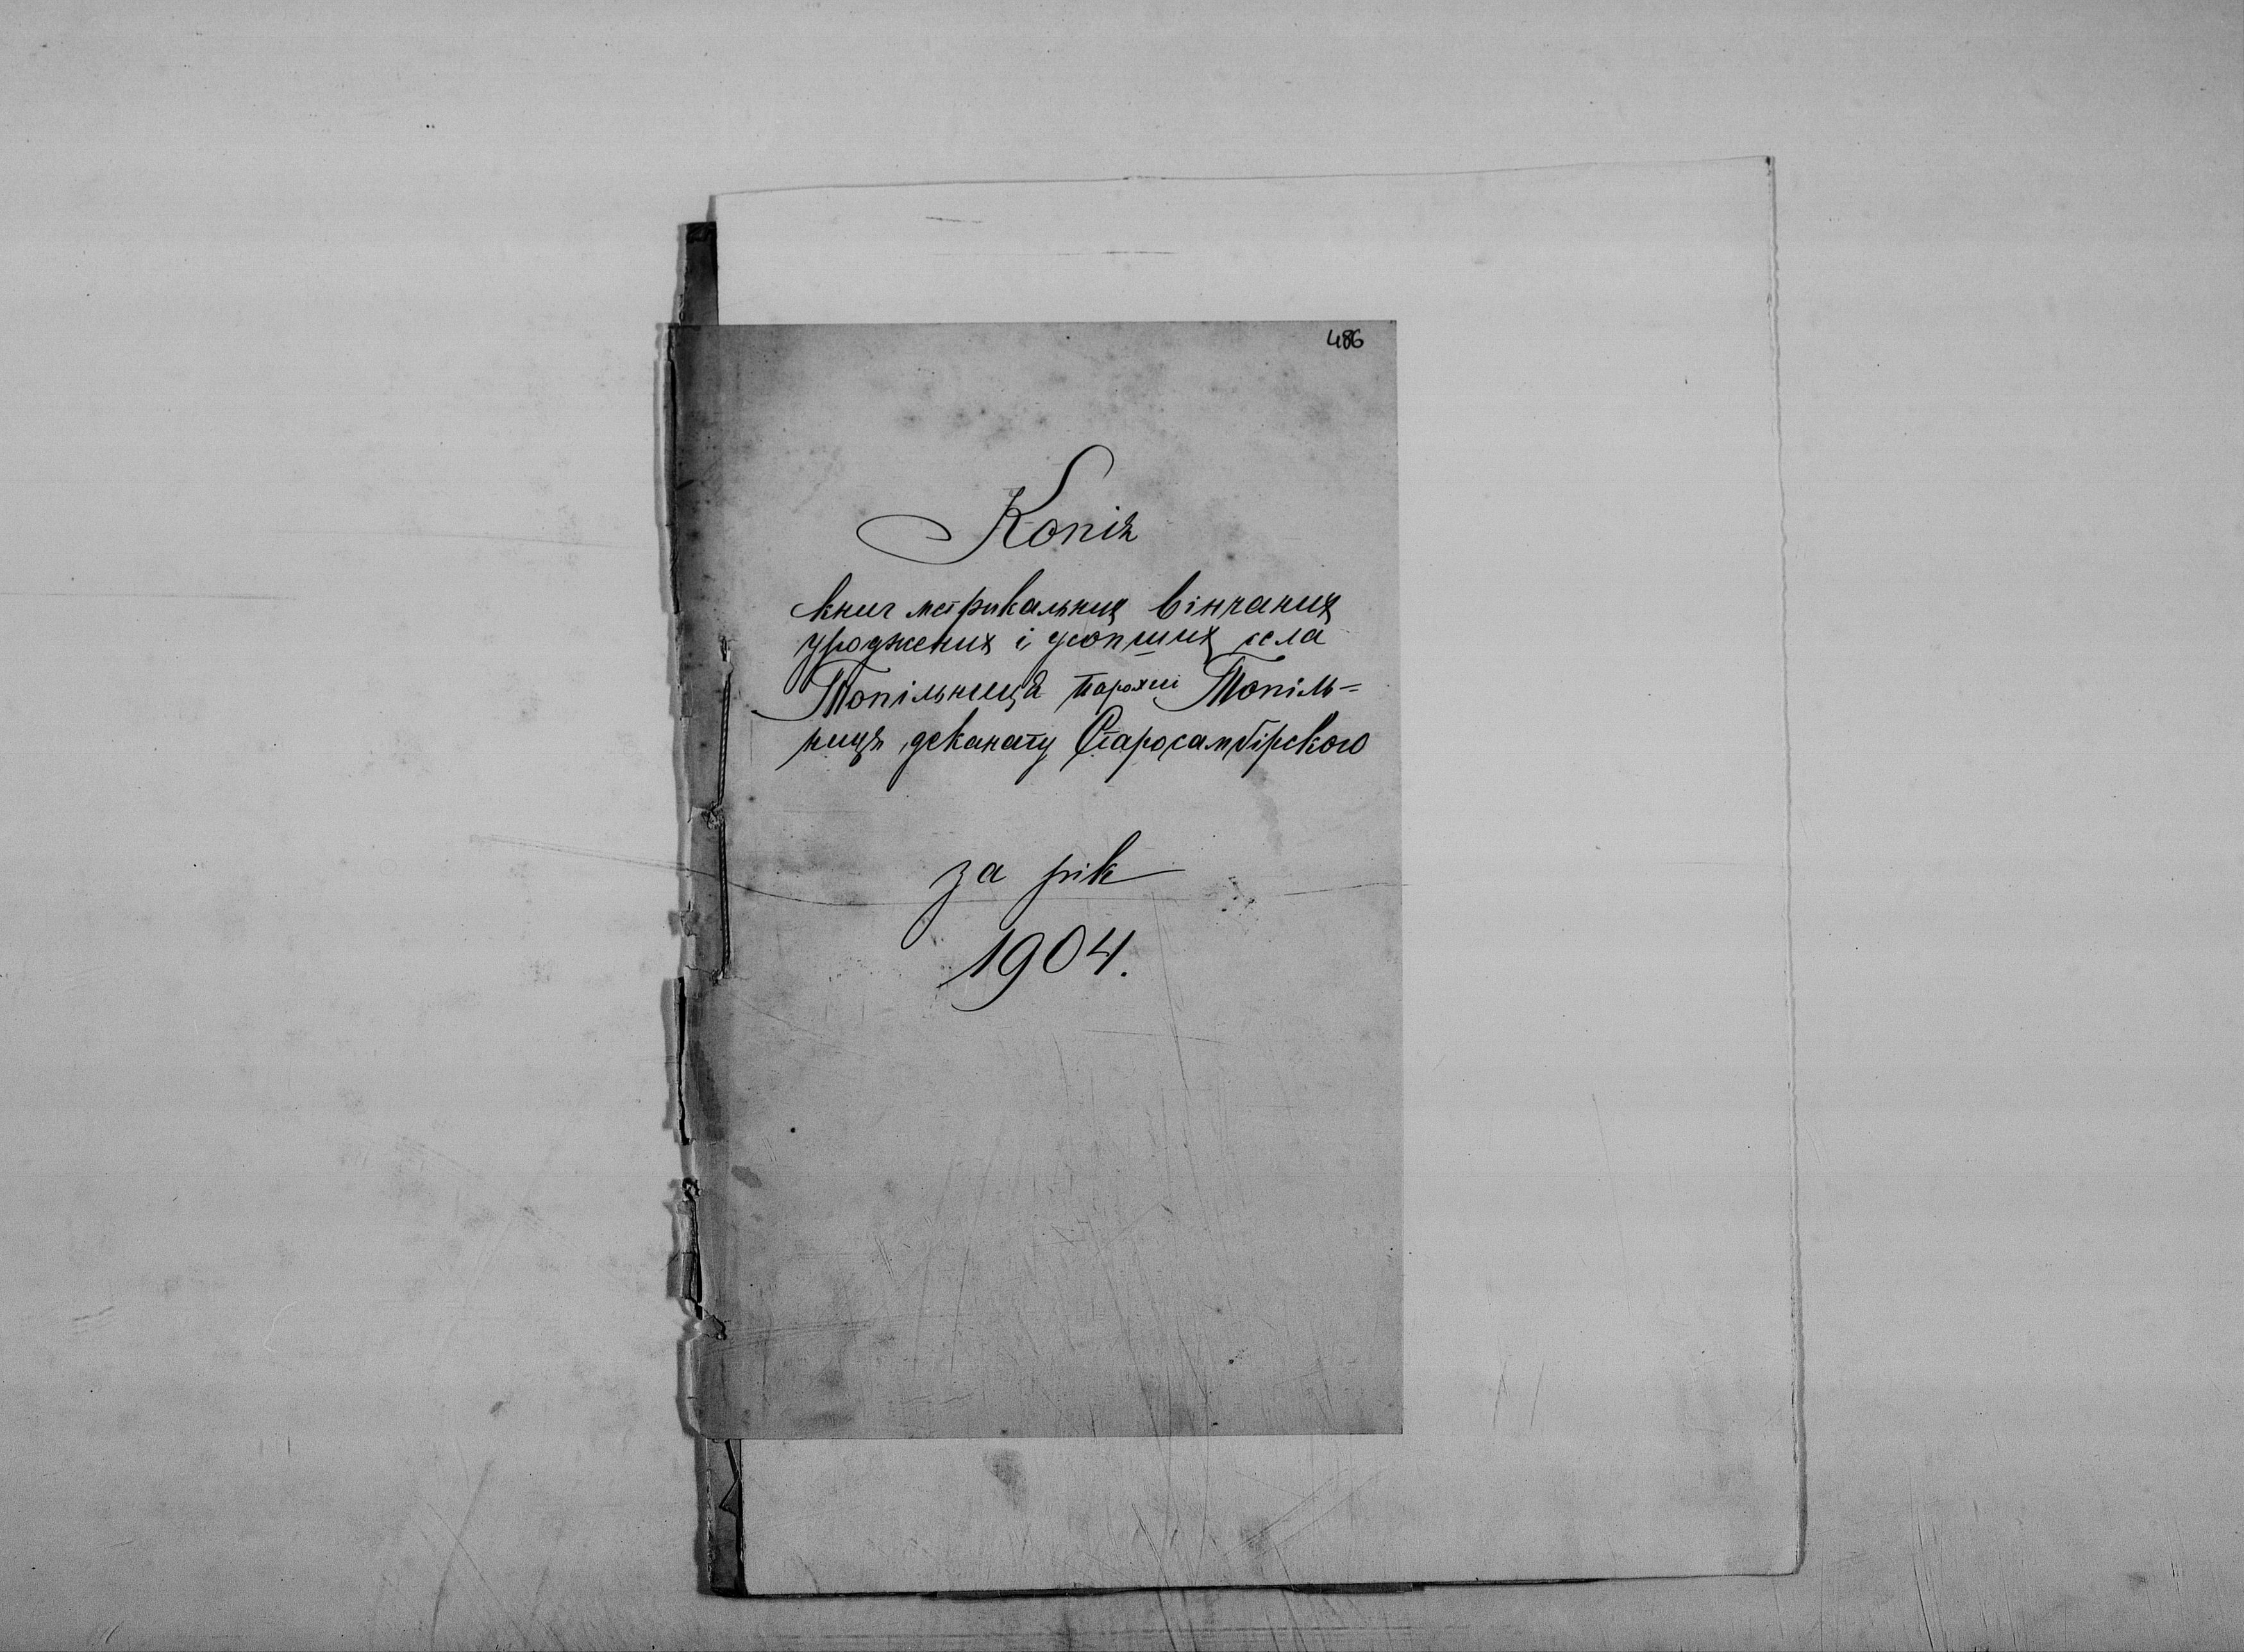 486
Копія
книг метрикальних вінчаних
уроджених і усопших села
Топільниця парохії Топіль=
ниця, деканату Старосамбірского
за рік
1904.